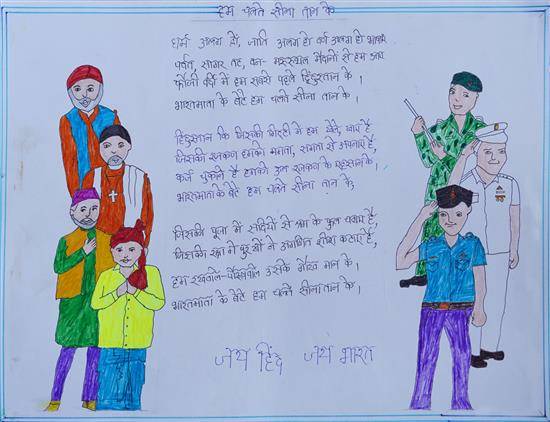 हम चलते सीना तान के
धर्म अलग हों, जाति अलग हो वर्ण अलग हो भाषाएं
पर्वत, सागर तट, वन- मरुस्थल मैदानों से हम आएं
फौजी वर्दी में हम सबसे पहले हिंदुस्तान के।
भारतमाता के बेटे हम चलते सीना तान के।
हिंदुस्तान कि जिसकी मिट्टी में हम खेले, खाए हैं,
जिसकी रजकण हमको ममता, समता से अपनाए हैं,
कर्ज चुकाने है हमको उन रजकण के एहसानके।
भारतमाता के बेटे हम चलते सीना तान के
जिसकी पूजा में सदियों से श्रम के फुल चढाए हैं,
जिसकी रक्षा में पुरखों ने अगणित शीश कटाए हैं,
हम रखवाले पौरुषवाले उसके गौरव मान के।
भारतमाता के बेटे हम चलते सीना तान के।
जय हिंद जय भारत